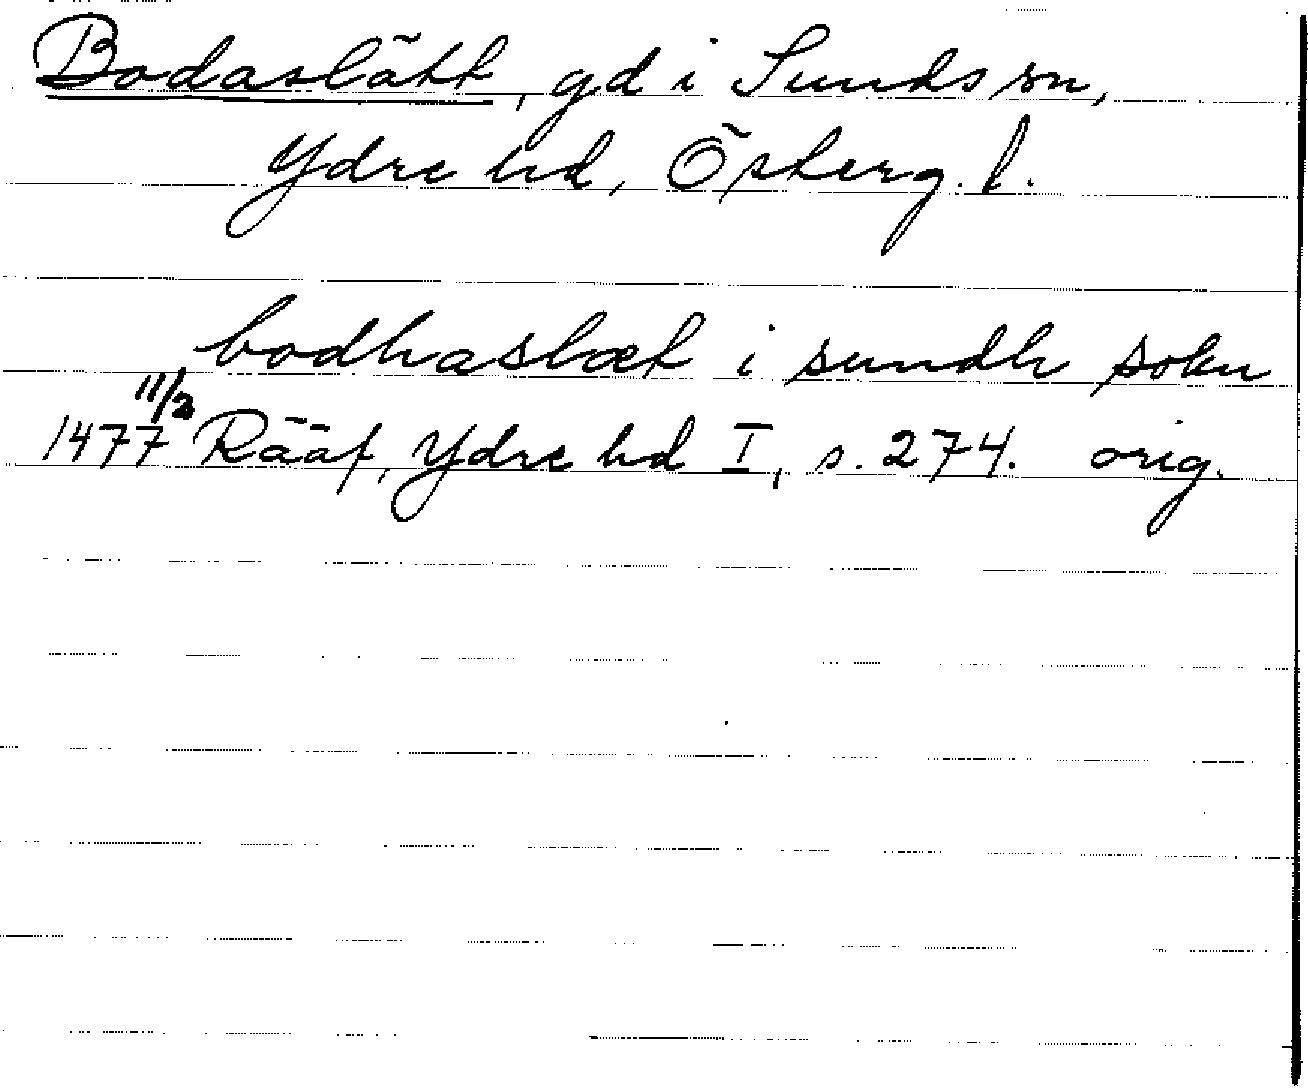 Bodaslätt, gd i Sunds sn,
Ydre hd, Österg. l.
bodhaslæt i sundh sokn
11/2
1477 Rääf, Ydre hd I, s. 274. orig.